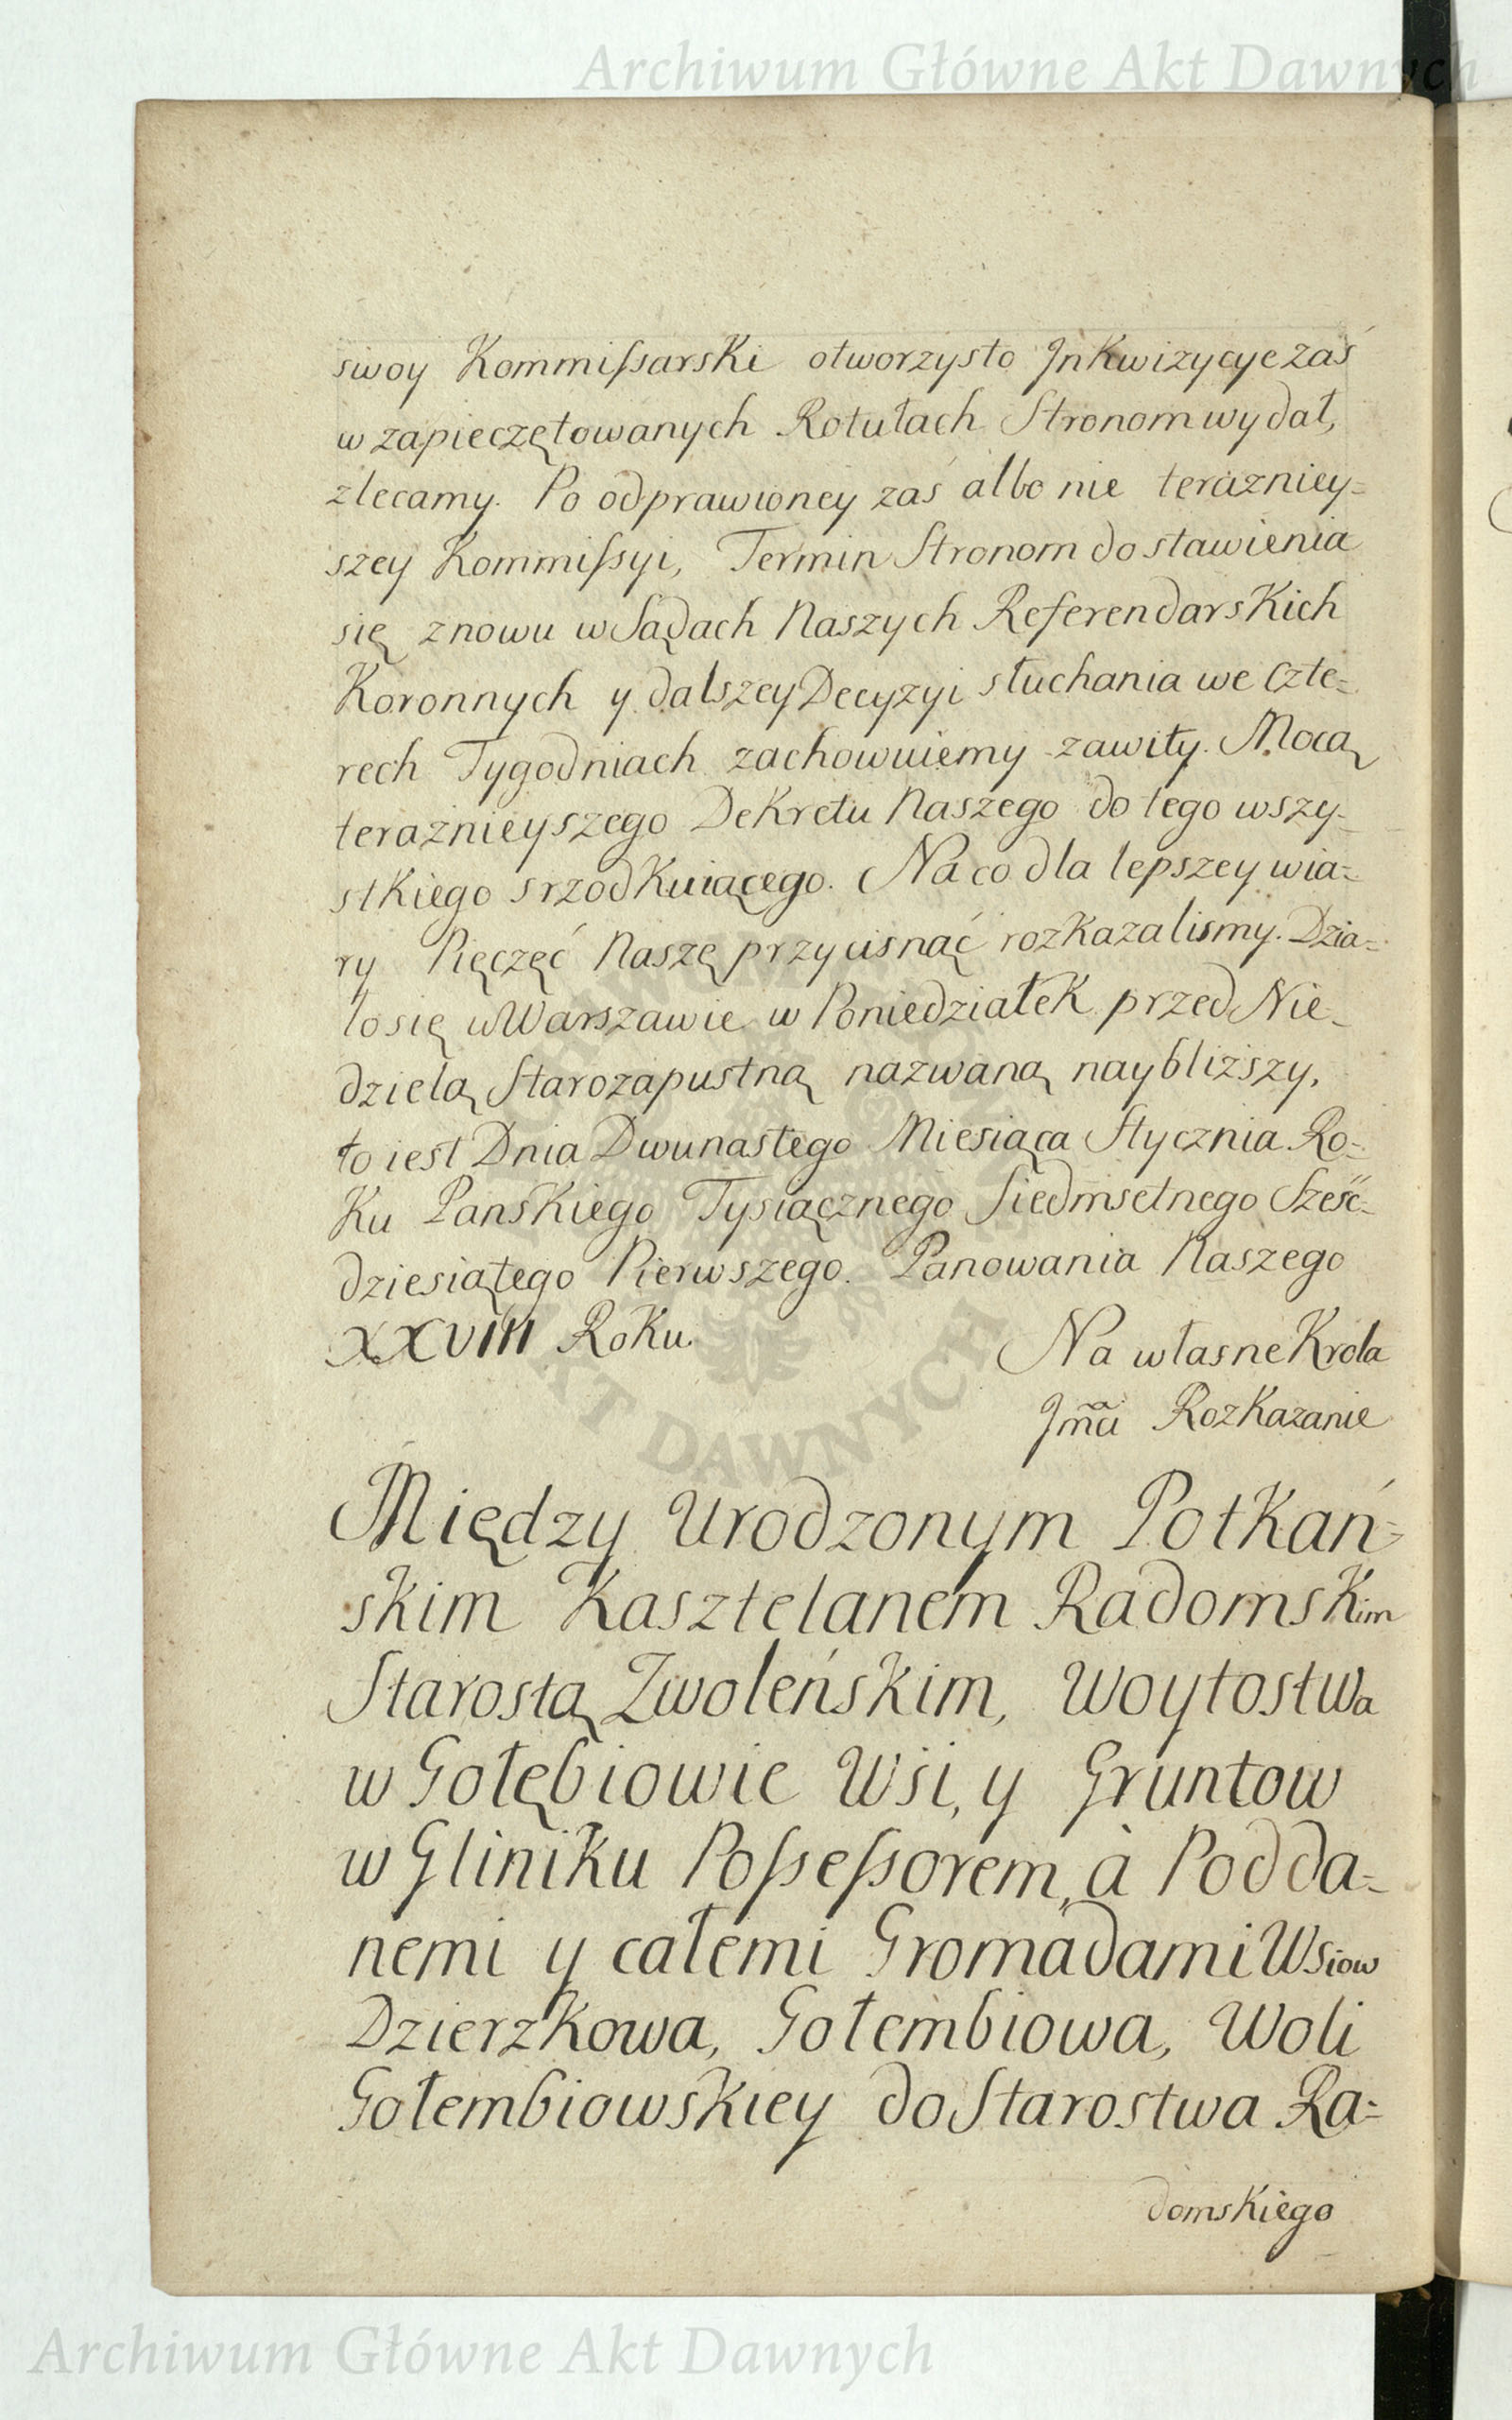 Archiwum Główne Akt Dawnych
swoy Kommiſsarski otworzysto Jnkwizycye zaś
w zapieczętowanych Rotułach Stronom wydał,
zlecamy. Po odprawioney zaś albo nie terazniey=
szey Kommiſsyi, Termin Stronom do stawienia
się znowu w Sądach Naszych Referendarskich
Koronnych y dalszey Decyzyi słuchania we Czte=
rech Tygodniach zachowuiemy zawity. Mocą
teraznieyszego Dekretu Naszego do tego wszy=
stkiego srzodkuiącego. Na co dla lepszey wia=
ry Pięczęć Naszę przycisnąć rozkazalismy. Dzia=
lo się w Warszawie w Poniedziałek przed Nie=
dzielą Starozapustną nazwaną naybliższy,
to iest Dnia Dwunastego Miesiąca Stycznia Ro=
ku Panskiego Tysiącznego Siedmsetnego Sześć=
dziesiątego Pierwszego. Panowania Naszego
XXVIII Roku.
Na własne Krola
Jmci Rozkazanie
Między Urodzonym Potkań=
skim Kasztelanem Radomskim
Starostą Zwoleńskim, Woytostwa
w Gołębiowie Wsi, y Gruntow
w Gliniku Poſseſsorem, à Podda=
nemi y całemi Gromadami Wsiow
Dzierzkowa, Gołembiowa, Woli
Gołembiowskiey do Starostwa Ra=
domskiego
ARCHIWUM GŁÓWNE AKT DAWNYCH
Archiwum Główne Akt Dawnych